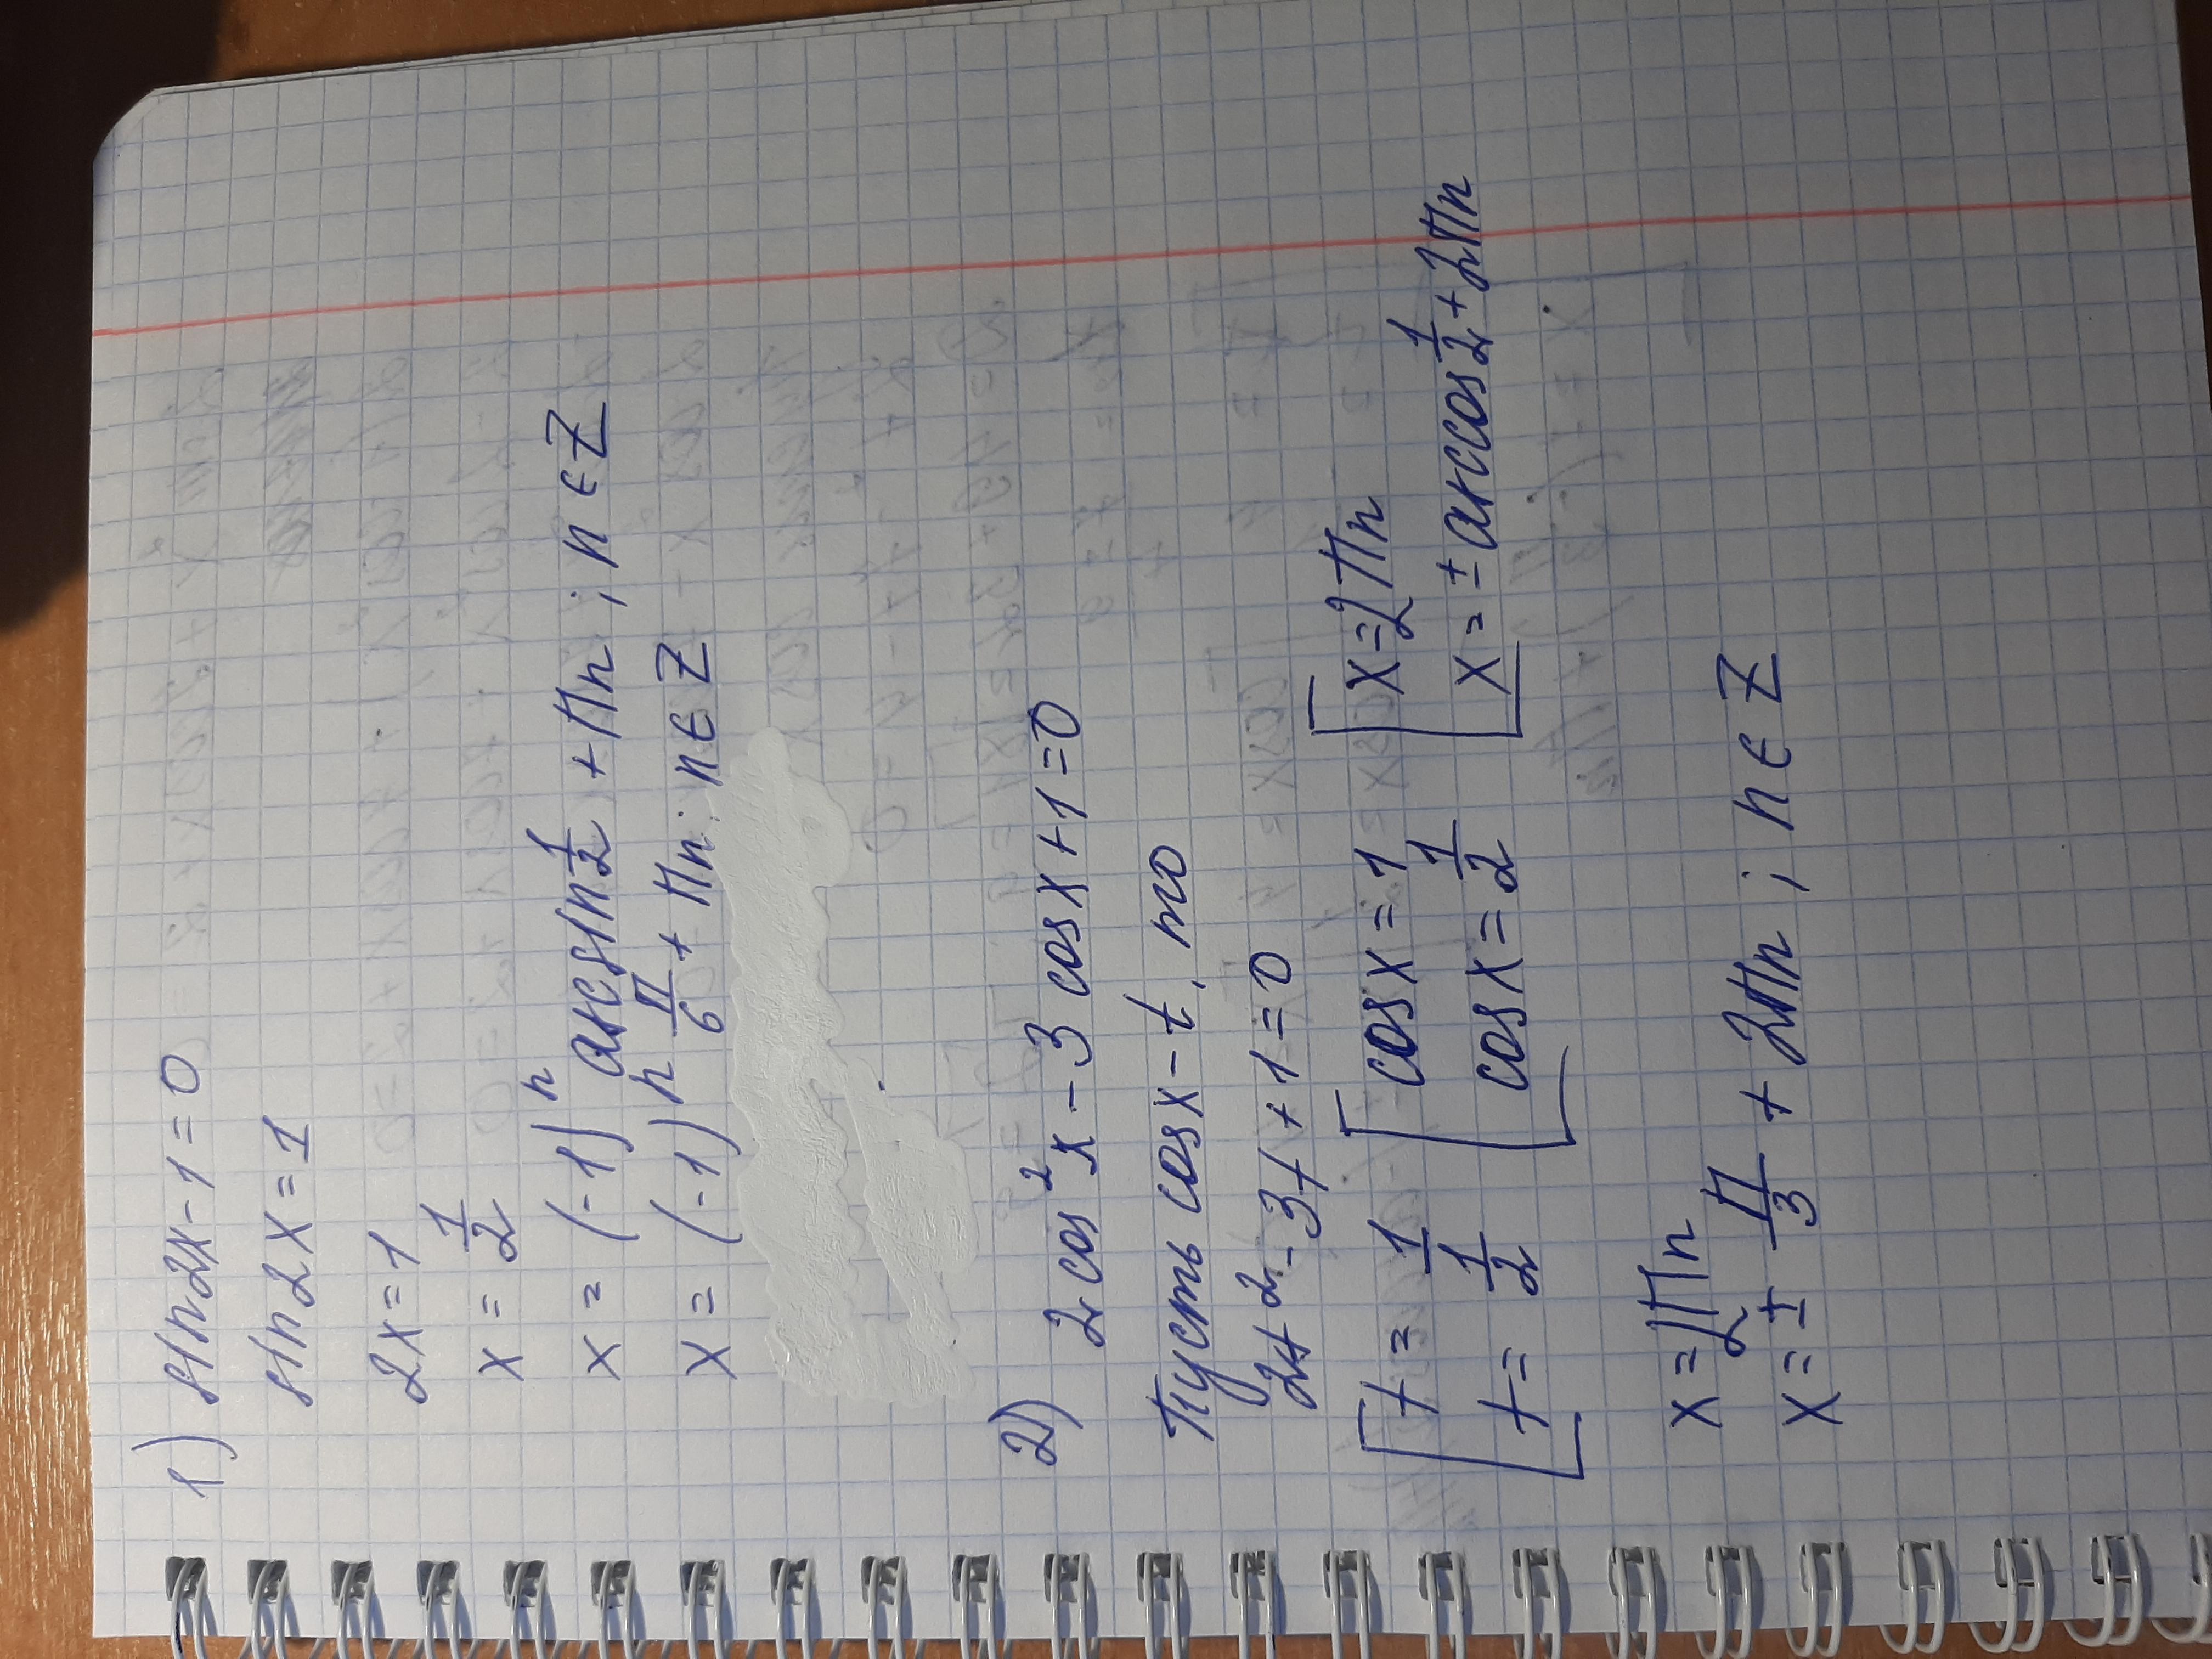 1) sin2x-1=0
sin2x=1
2x=1
x=1/2
x=(-1)ⁿ arcsin 1/2 + Пn; n∈Z
x=(-1)ⁿ П/6 + Пn; n∈Z
2) 2cos²x-3cosx+1=0
Пусть cosx-t, то
2t²-3t+1=0
[ t=1 [ cosx=1 [ x=2Пn
t=1/2 cosx=1/2 x=±arccos 1/2+2Пn
x=2Пn
x=± П/3 + 2Пn; n∈Z